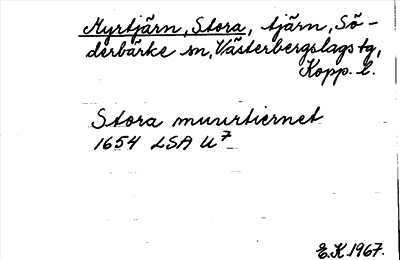 Myrtjärn, Stora, tjärn, Sö-
derbärke sn, Västerbergslags tg,
Kopp. l.
Stora muurtiernet
1654 LSA U7
E.K. 1967.